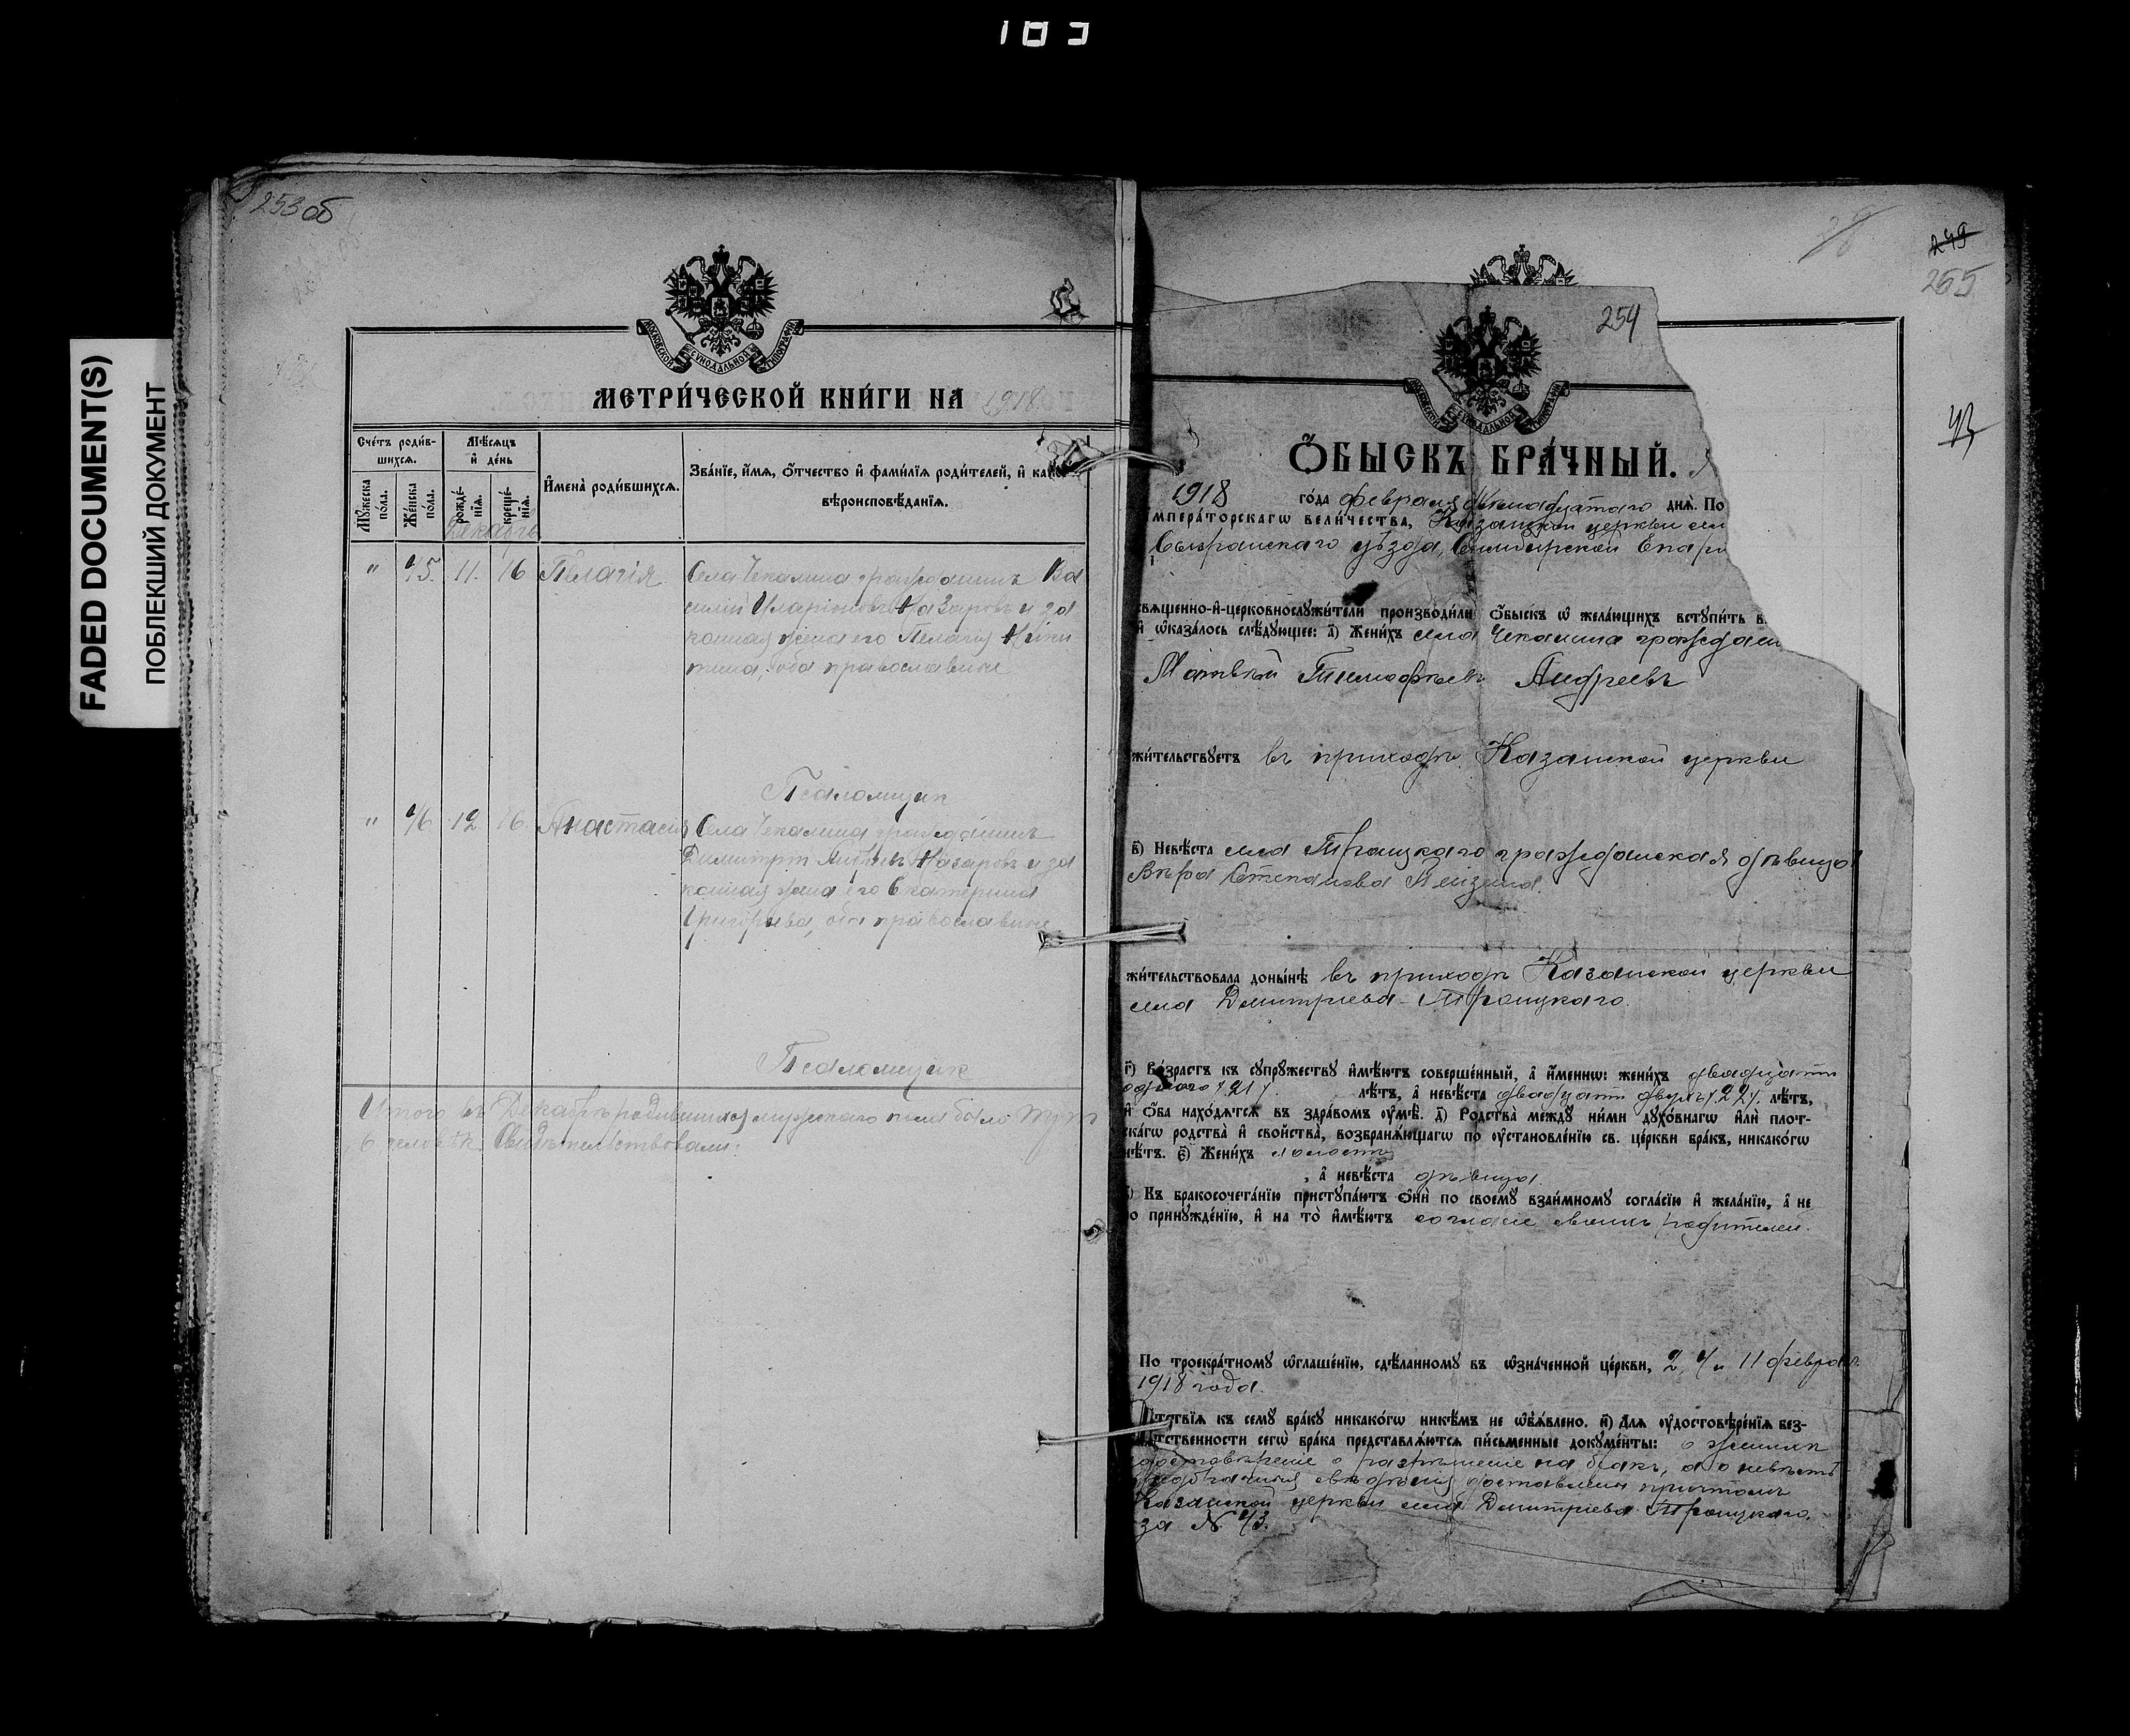 183
FADED DOCUMENT(S)
ПОБЛЕКШИЙ ДОКУМЕНТ
253 об
МОСКОВСКОЙ СѴНОДАЛЬНОЙ ТИПОГРАФІИ
МЕТРИ́ЧЕСКОЙ КНИ́ГИ НА 1918
Сче́тъ роди́в-
шихсѧ.
Мѣ́сѧцъ
и҆ де́нь
И҆мена̀ роди́вшихсѧ.
Зва́нїе, и҆́мѧ, ѻ҆́тчество и҆ фами́лїѧ роди́телей, и҆ како́гѡ
вѣроисповѣ́данїѧ.
Мꙋ́жеска по́ла.
Же́нска по́ла.
рожде́-нїѧ.
креще́-нїѧ.
Декабрь
" 45. 11. 16 Пелагія Села Чекалина гражданинъ Ва
силій Иларіоновъ Назаровъ и за
конная жена его Пелагія Ники
тина, оба православные
Псаломщик
" 46 12 16. Анастасія Села Чекалина гражданинъ
Димитрій Назаровъ и за
конная жена его Екатерина
Григорьева, оба православные
Псаломщик
Итого въ Декабрѣ родившихся мужескаго пола было
6 человѣк. Свидѣтельствовали:
249
255
43
254
МОСКОВСКОЙ СѴНОДАЛЬНОЙ ТИПОГРАФІИ
Ѻ҆БЫСКЪ БРА́ЧНЫЙ.
1918 го́да февраля двѣнадцатаго днѧ̀. По
мпера́торскагѡ вели́чества, Казанской церкви сел
Сызранскаго уѣзда, Симбирской Епар
свѧщенно-и҆-церковнослꙋжи́тели производи́ли ѻ҆́быскъ ѡ҆ жела́ющихъ встꙋпи́ть в
и҆ ѡ҆каза́лось слѣ́дꙋющее: а҃) Жени́хъ села Чекалина граждан
Матвѣй Тимофѣевъ Андреевъ
жи́тельствꙋетъ въ приходѣ Казанской церкви
в҃) Невѣ́ста села Троицкаго гражданская дѣвица
Вѣра Степанова
жи́тельствовала доны́нѣ въ приходѣ Казанской церкви
села Дмитріева-Троицкаго.
г҃) Во́зрастъ къ сꙋпрꙋ́жествꙋ и҆мѣ́ютъ соверше́нный, а҆ и҆́меннѡ: жени́хъ двадцати
одного /21/ лѣ́тъ, а҆ невѣ́ста двадцати двухъ /22/. лѣ́тъ,
и҆ ѻ҆́ба нахо́дѧтсѧ въ здра́вомъ ᲂу҆мѣ̀. д҃) Родства̀ междꙋ̀ ни́ми дꙋхо́внагѡ и҆лѝ плот-
ска́гѡ родства̀ и҆ сво́йства̀, возбранѧ́ющагѡ по ᲂу҆становле́нїю св. це́ркви бра́къ, никако́гѡ
нѣ́тъ. є҃) Жени́хъ холостъ
, а҆ невѣ́ста дѣвица.
Къ бракосочета́нїю пристꙋпа́ютъ ѻ҆нѝ по своемꙋ̀ взаи́мномꙋ согла́сїю и҆ жела́нїю, а҆ не
о принꙋжде́нїю, и҆ на то̀ и҆мѣ́ютъ согласіе своихъ родителей.
По троекра́тномꙋ ѡ҆глаше́нїю, сдѣ́ланномꙋ въ ѡ҆зна́ченной це́ркви, 2, 4 и 11 февраля
1918 года.
ѧ́тствїѧ къ семꙋ̀ бра́кꙋ никако́гѡ никѣ́мъ не ѡ҆б̾ѧ́влено. и҃) Длѧ ᲂу҆достовѣре́нїѧ без-
ѧ́тственности сегѡ̀ бра́ка представлѧ́ютсѧ пи́сьменные докꙋме́нты: о женихѣ
удостовѣреніе о разрѣшеніе на бракъ, а о невѣстѣ
свѣдѣнія доставлены причтомъ
Казанской церкви села Дмитріева-Троицкаго.
за № 43.